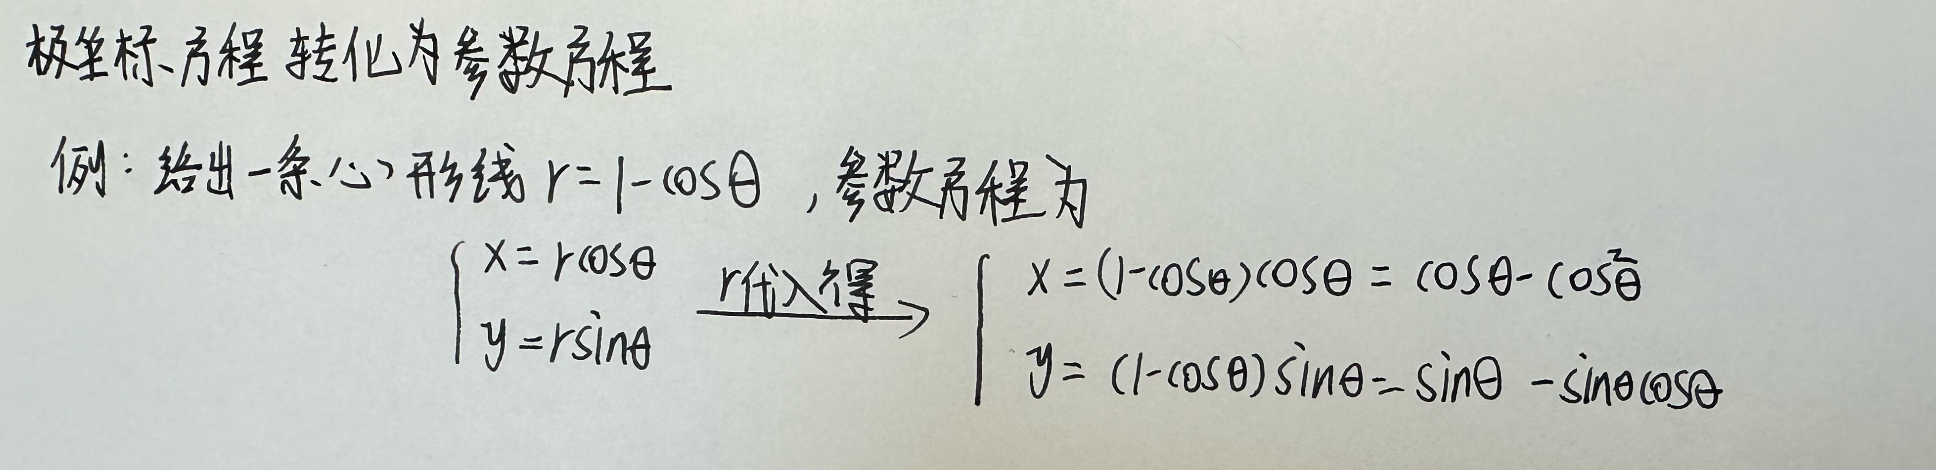 极坐标方程转化为参数方程
例：给出一条心形线 r=1-cosθ ，参数方程为
{ x=rcosθ  y=rsinθ  r代入得→  { x=(1-cosθ)cosθ = cosθ-cos²θ
y= (1-cosθ)sinθ=sinθ -sinθcosθ